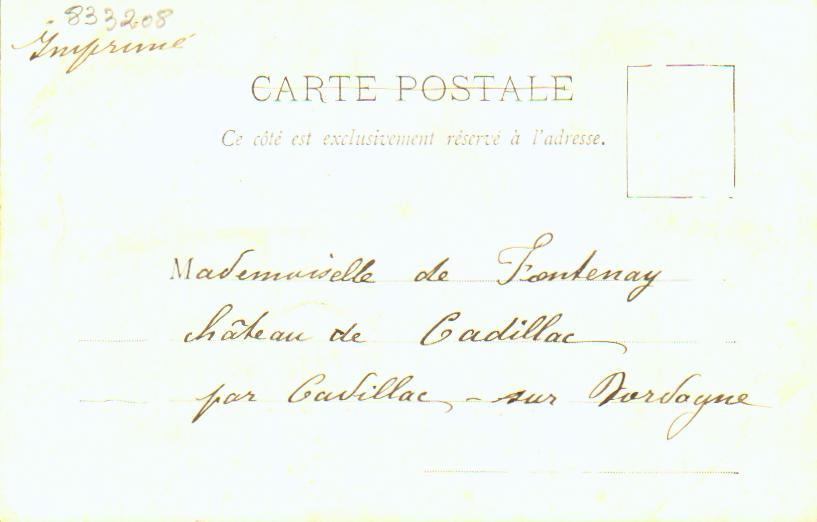 833208
Imprimé
CARTE POSTALE
Ce côté est exclusivement réservé à l'adresse.
Mademoiselle de Fontenay
château de Cadillac
par Cadillac - sur Dordogne